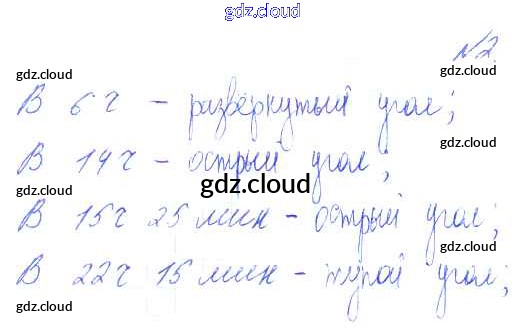 gdz.cloud
№2.
gdz.cloud gdz.cloud
В 6 ч - развёрнутый угол;
gdz.cloud gdz.cloud
В 14 ч - острый угол;
gdz.cloud
gdz.cloud gdz.cloud
В 15 ч 25 мин - острый угол;
gdz.cloud gdz.cloud
В 22 ч 15 мин - тупой угол;
gdz.cloud gdz.cloud